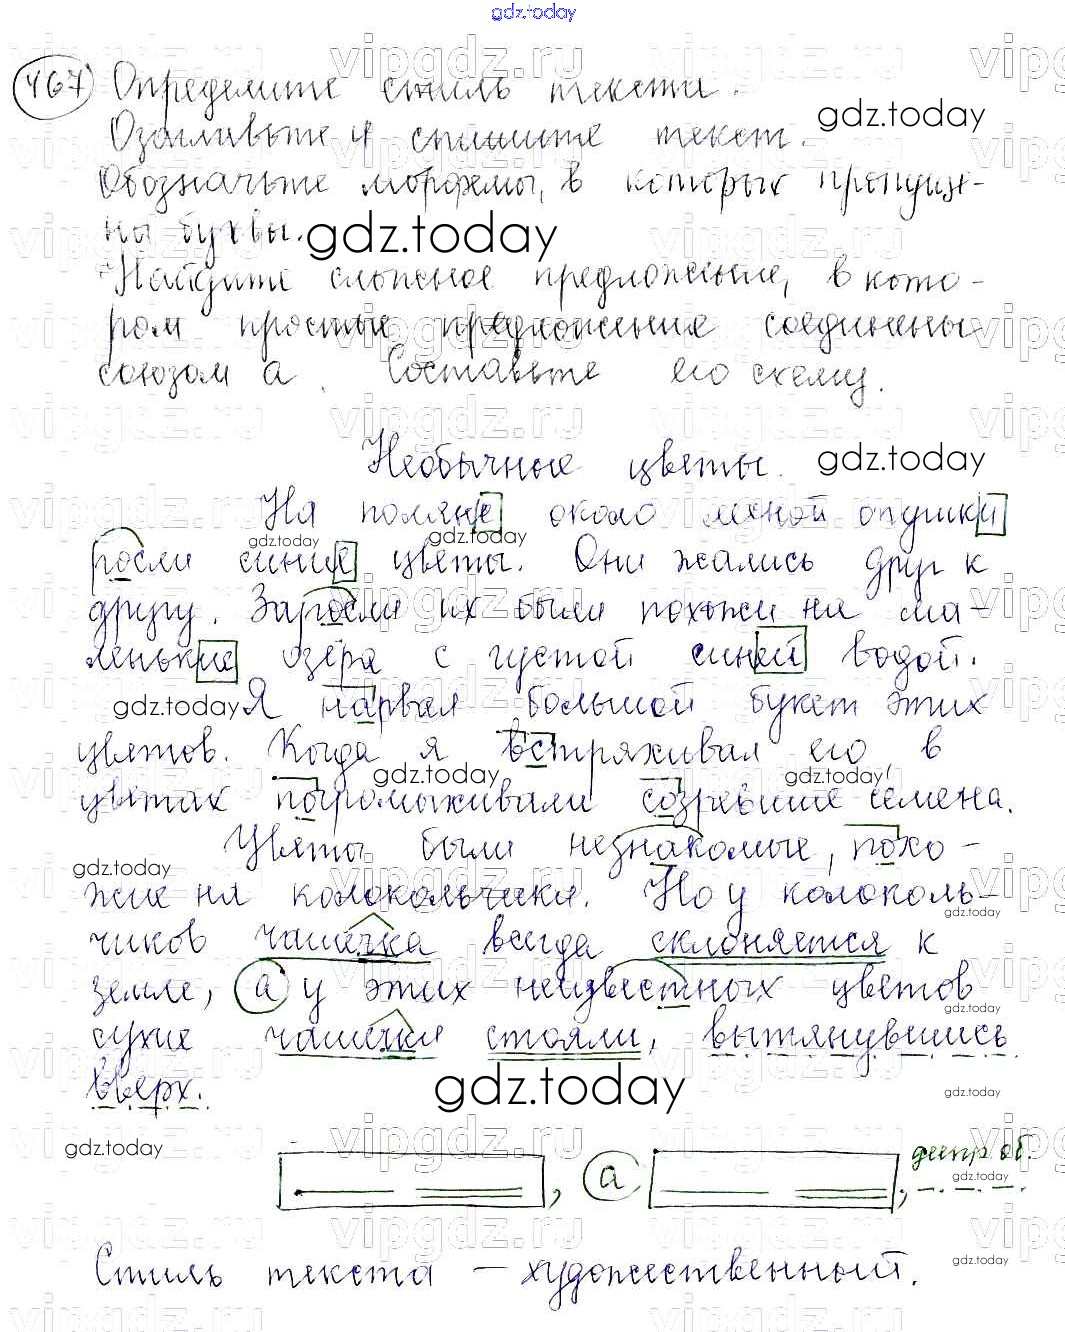 gdz.today
467 Определите стиль текста.
Озаглавьте и спишите текст.
Обозначьте морфемы, в которых пропуще-
ны буквы.
Найдите сложное предложение, в кото-
ром простые предложения соединены
союзом а. Составьте его схему.
Необычные цветы.
На поляне около лесной опушки
росли синие цветы. Они жались друг к
другу. Заросли их были похожи на ма-
ленькие озёра с густой синей водой.
Я нарвал большой букет этих
цветов. Когда я встряхивал его, в
цветах погромыхивали созревшие семена.
Цветы были незнакомые, похо-
жие на колокольчики. Но у колоколь-
чиков чашечка всегда склоняется к
земле, а у этих неизвестных цветов
сухие чашечки стояли, вытянувшись
вверх.
, а , деепр. об.
Стиль текста – художественный.